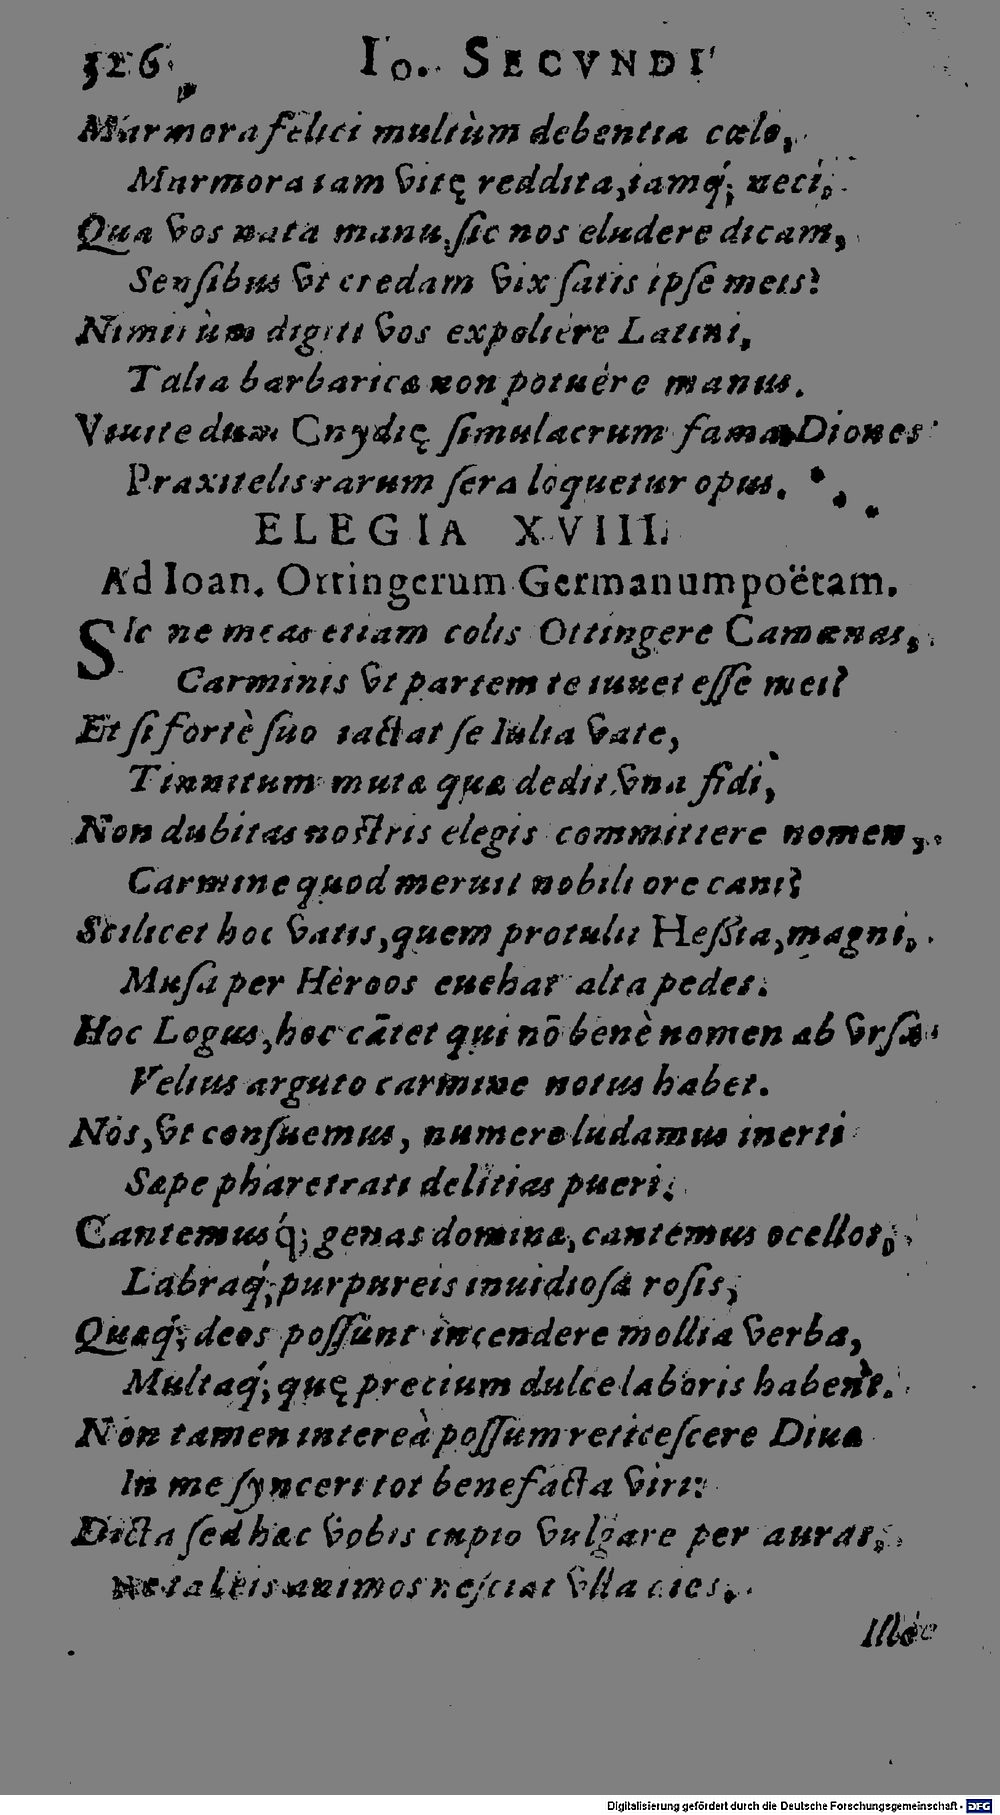 326 Io. SECVNDI
Marmora felici multùm debentia cœlo,
Marmora iam vitę reddita, iamq́; neci,
Qua vos nata manu, sic nos eludere dicam,
Sensibus vt credam vix satis ipse meis?
Nimirùm digiti vos expoliêre Latini,
Talia barbaricæ non potuêre manus.
Viuite dum Cnydię simulacrum fama Diones
Praxitelis rarum sera loquetur opus.
ELEGIA XVIII.
Ad Ioan. Ottingerum Germanum poëtam.
SIc ne meas etiam colis Ottingere Camœnas,
Carminis vt partem te iuuet esse mei?
Et si fortè suo iactat se Iulia vate,
Tinnitum mutæ quæ dedit vna fidi,
Non dubitas nostris elegis committere nomen,
Carmine quod meruit nobili ore cani?
Scilicet hoc vatis, quem protulit Hessia, magni,
Musa per Hèroos euehat alta pedes.
Hoc Logus, hoc cātet qui nō benè nomen ab vrsæ
Velius arguto carmine notus habet.
Nos, vt consuemus, numero ludamus inerti
Sæpe pharetrati delitias pueri:
Cantemusq́; genas dominæ, cantemus ocellos,
Labraq́; purpureis inuidiosa rosis,
Quæq́; deos possunt incendere mollia verba,
Multaq́; quę precium dulce laboris habent.
Non tamen intereà possum reticescere Diuæ
In me synceri tot benefacta viri:
Dicta sed hæc vobis cupio vulgare per auras,
Ne taleis animos nesciat vlla dies.
Illæc
Digitalisierung gefördert durch die Deutsche Forschungsgemeinschaft - DFG